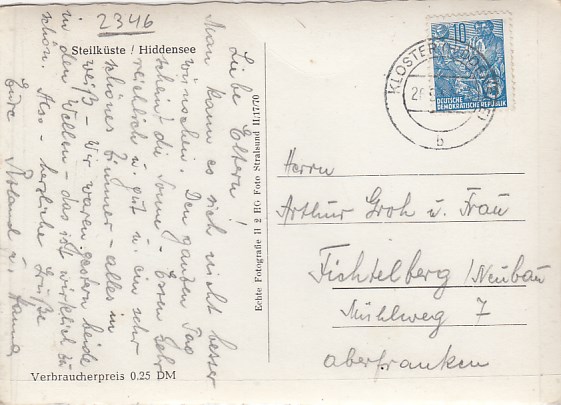 2346
Steilküste / Hiddensee
Liebe Eltern!
Man kann es sich nicht besser
wünschen. Den ganzen Tag
scheint die Sonne - Essen sehr
reichlich u. gut u. ein sehr
schönes Zimmer - alles in
weiß - Wir waren gestern beide
in den Wellen - das ist wirklich zu
schön. Also - herzliche Grüße
Eure Roland u. Hanna
Verbraucherpreis 0.25 DM
Echte Fotografie II 2 HG Foto Stralsund II/1770
KLOSTER
b
10
DEUTSCHE
DEMOKRATISCHE REPUBLIK
Herrn
Arthur Groh u. Frau
Fichtelberg / Neubau
Mühlweg 7
Oberfranken